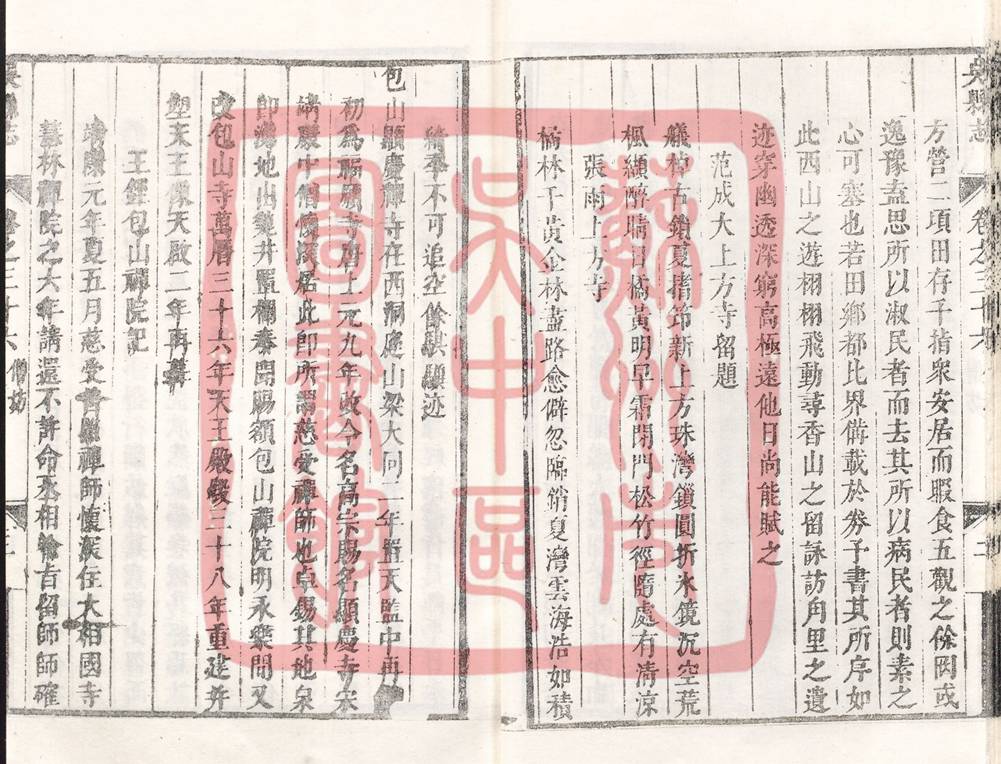 吳縣志
卷之三十六
二
方營二頃田存子指衆安居而暇食五觀之餘罔或
逸豫盍思所以淑民者而去其所以病民者則素之
心可塞也若田鄉都比界備載於券子書其所序如
此西山之遊栩栩飛動尋香山之留詠訪角里之遺
迹穿幽透深窮高極遠他日尚能賦之
范成大上方寺留題
艤棹古鎖夏搘筇新上方珠灣鎖圓折水鏡沉空荒
楓纈醉晴日橘黃明早霜閉門松竹徑隨處有淸涼
張雨上方寺
橘林千黃金林盡路愈僻忽臨銷夏灣雲海浩如積
綺季不可追空餘騏驥迹
包山顯慶禪寺在西洞庭山梁大同二年置天監中再
初爲福願寺唐上元九年改今名高宗賜名顯慶寺宋
靖康中僧懷深居此卽所謂慈受禪師也卓錫其地泉
卽湧地出甃井置欄奏聞賜額包山禪院明永樂間又
改包山寺萬曆三十六年天王殿燬三十八年重建并
塑天王像天啟二年再葺
王銍包山禪院記
靖康元年夏五月慈受普照禪師懷深住大相國寺
慧林禪院之六年請還不許命丞相諭旨留師師確
卷之三十六 僧坊
三
蘇州市
吳中區
圖書館